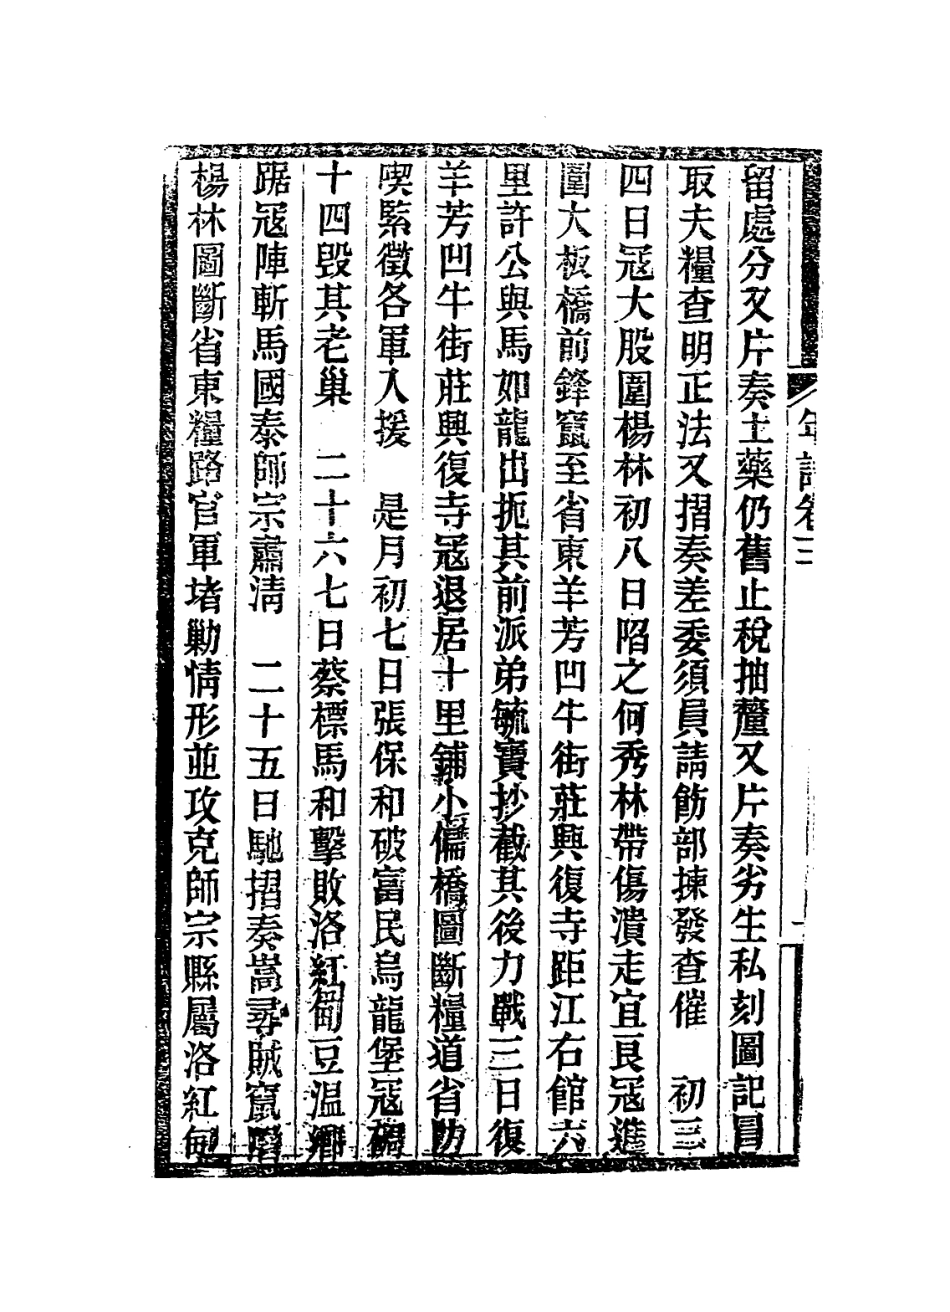 留處分又片奏土藥仍舊止稅抽釐又片奏劣生私刻圖記冒
取夫糧查明正法又摺奏差委須員請飭部揀發查催　初三
四日冦大股圍楊林初八日陷之何秀林帶傷潰走宜良冦進
圍大板橋前鋒竄至省東羊芳凹牛街莊興復寺距江右館六
里許公與馬如龍出扼其前派弟毓寶抄截其後力戰三日復
羊芳凹牛街莊興復寺冦退居十里鋪小偏橋圖斷糧道省防
喫緊徵各軍入援　是月初七日張保和破富民烏龍堡冦碉
十四毀其老巢　二十六七日蔡標馬和擊敗洛紅甸豆温鄉
踞冦陣斬馬國泰師宗肅清　二十五日馳摺奏嵩尋賊竄踞
楊林圖斷省東糧路官軍堵勦情形並攻克師宗縣屬洛紅甸
年譜卷三